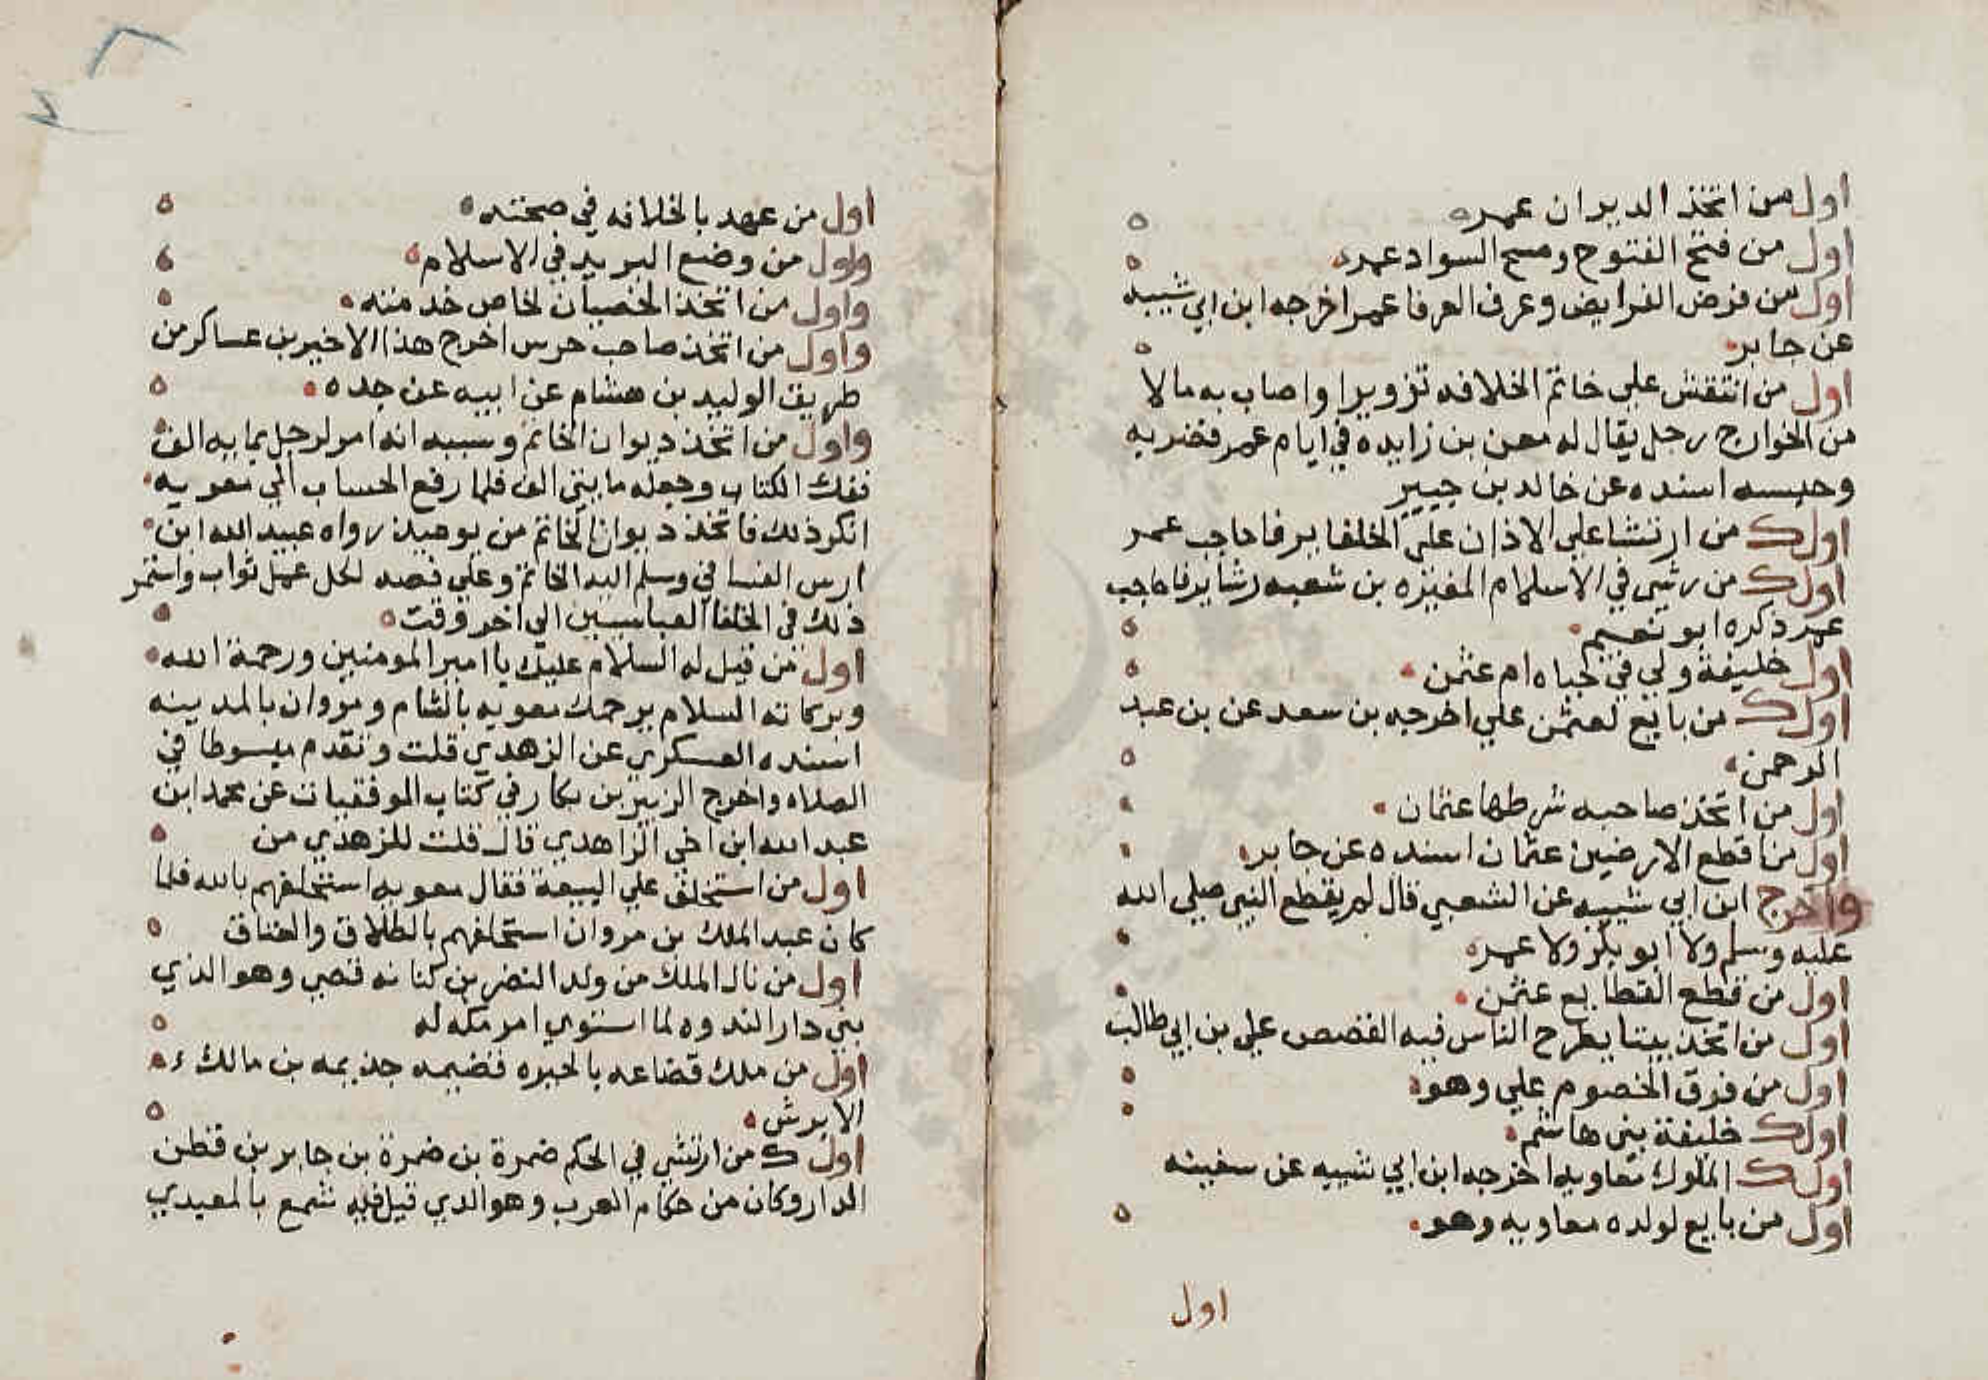 اول من اتخذ الديوان عمر
اول من فتح الفتوح ومسح السواد عمر
اول من فرض الفرايض وعرف العرفا عمر اخرجه ابن ابي شيبه
عن جابر
اول من انتقش علي خاتم الخلافه تزويرا واصاب به مالا
من الخوارج رجل يقال له معن بن زايده في ايام عمر فضربه
وحبسه اسنده عن خالد بن
اول من ارتشا علي الاذان علي الخلفا يرفا حاجب عمر
اول من رشي في الاسلام المغيره بن شعبه رشا يرفا حاجب
عمر ذكره ابو نعيم
اول خليفة ولي في حياه ام عثمن
اول من بايع لعثمن علي اخرجه بن سعد عن بن عبد
الرحمن
اول من اتخذ صاحبه شرطها عثمان
اول من اقطع الارضين عثمان اسنده عن جابر
واخرج ابن ابي شيبه عن الشعبي قال لم يقطع النبي صلي الله
عليه وسلم ولا ابو بكر ولا عمر
اول من قطع القطايع عثمن
اول من اتخذ بيتا يطرح الناس فيه القصص علي بن ابي طالب
اول من فرق الخصوم علي وهو
اول خليفة بني هاشم
اول الملوك معاويه اخرجه ابن ابي شيبه عن سفينه
اول من بايع لولده معاويه وهو
اول
اول من عهد بالخلافه في صحته
واول من وضع البريد في الاسلام
واول من اتخذ الخصيان لخاص خدمته
واول من اتخذ صاحب حرس اخرج هذا الاخير بن عساكر من
طريق الوليد بن هشام عن ابيه عن جده
واول من اتخذ ديوان الخاتم وسببه انه امر لرجل بمايه الف
ففك الكتاب وجعله مايتي الف فلما رفع الحساب الي معويه
انكر ذلك فاتخذ ديوان الخاتم من يوميذ رواه عبيد الله ابن
اوس الغساني وسلم اليه الخاتم وعلي فصه لكل عمل ثواب واستمر
ذلك في الخلفا العباسيين الي اخر وقت
اول من قيل له السلام عليك يا امير المومنين ورحمة الله
وبركاته السلام يرحمك معويه بالشام ومروان بالمدينه
اسنده العسكري عن الزهدي قلت وتقدم مبسوطا في
الصلاه واخرج الزبير بن بكار في كتاب الموفقيات عن محمد ابن
عبد الله ابن اخي الزاهدي قال قلت للزهدي من
اول من استحلف علي البيعة فقال معويه استحلفهم بالله فلما
كان عبد الملك بن مروان استحلفهم بالطلاق والعتاق
اول من نال الملك من ولد النضر بن كنانه قصي وهو الذي
بني دار الندوه لما استوي امر مكه له
اول من ملك قضاعه بالحيره جذيمه بن مالك
الابرش
اول من ارتشي في الحكم ضمرة بن ضمرة بن جابر بن قطن
الدار وكان من حكام العرب وهو الذي قيل فيه تسمع بالمعيدي